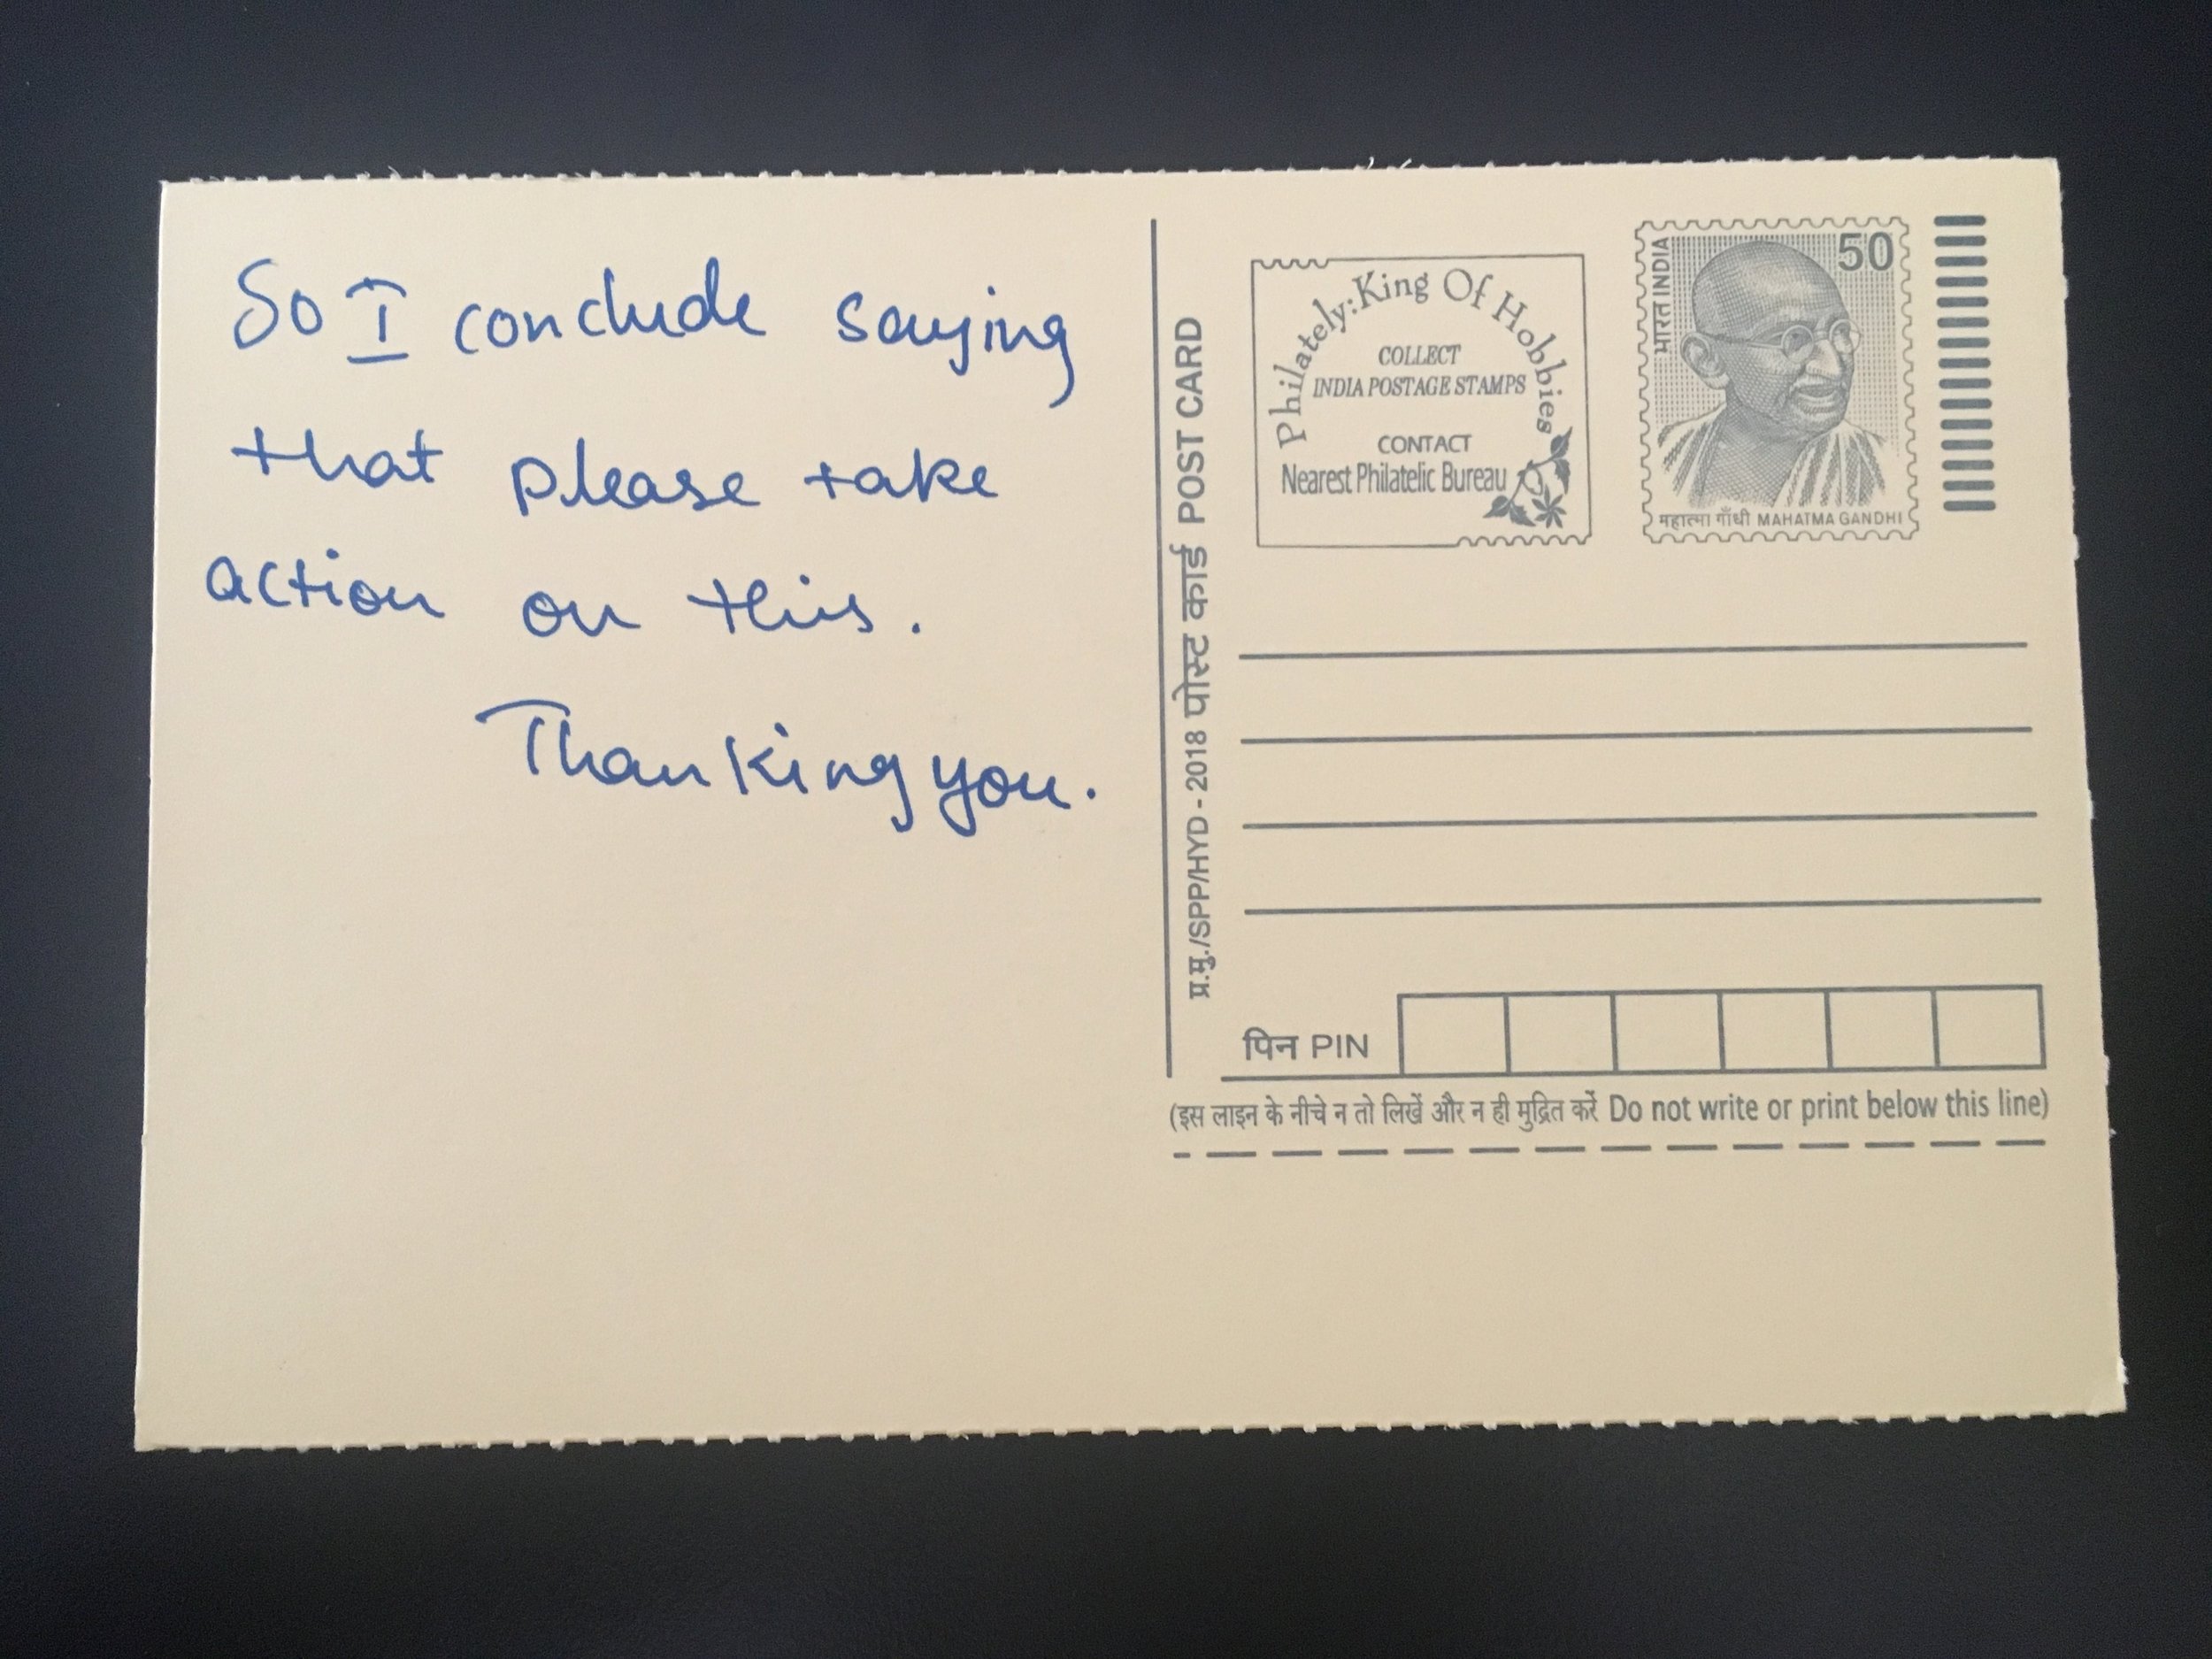 So I conclude saying
that please take
action on this.
Thanking you.
प्र.मु./SPP/HYD - 2018 पोस्ट कार्ड POST CARD
Philately: King Of Hobbies
COLLECT
INDIA POSTAGE STAMPS
CONTACT
Nearest Philatelic Bureau
भारत INDIA
50
महात्मा गाँधी MAHATMA GANDHI
पिन PIN
(इस लाइन के नीचे न तो लिखें और न ही मुद्रित करें Do not write or print below this line)